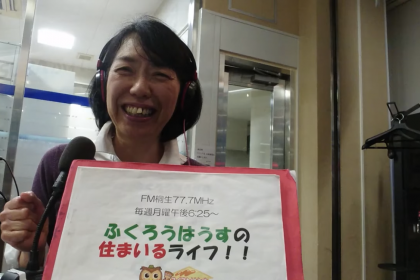 FM桐生77.7MHz
毎週月曜午後6:25～
ふくろうはうすの
住まいるライフ！！